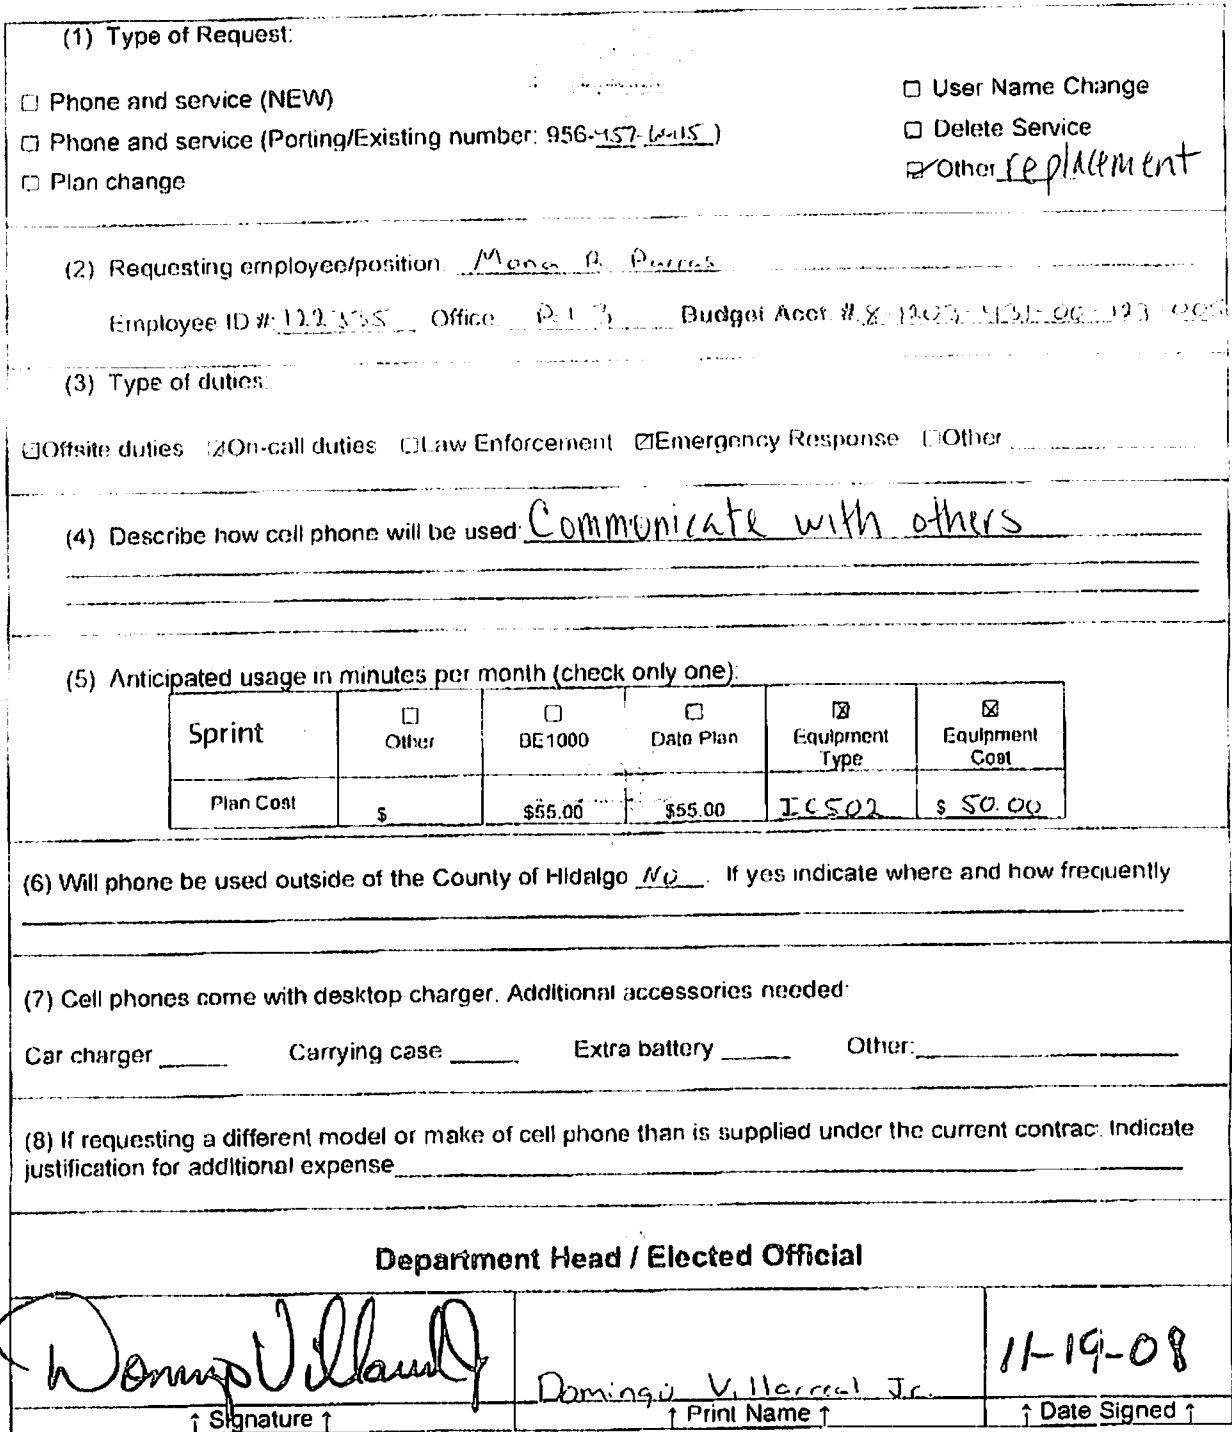 (1) Type of Request:
☐ Phone and service (NEW)
☐ User Name Change
☐ Phone and service (Porting/Existing number: 956-457- )
☐ Delete Service
☐ Plan change
☑ Other replacement
(2) Requesting employee/position Mona
Employee ID #: Office Budget Acct. #
(3) Type of duties:
☑Offsite duties ☑On-call duties ☐Law Enforcement ☑Emergency Response ☐Other
(4) Describe how cell phone will be used: Communicate with others
(5) Anticipated usage in minutes per month (check only one):
Sprint ☐ Other ☐ BE1000 ☐ Data Plan ☒ Equipment Type ☒ Equipment Cost
Plan Cost $ $55.00 $55.00 IC502 $ 50.00
(6) Will phone be used outside of the County of Hidalgo No . If yes indicate where and how frequently
(7) Cell phones come with desktop charger. Additional accessories needed:
Car charger Carrying case Extra battery Other:
(8) If requesting a different model or make of cell phone than is supplied under the current contrac. Indicate
justification for additional expense
Department Head / Elected Official
Domingo Villarreal Jr. 11-19-08
↑ Signature ↑ ↑ Print Name ↑ ↑ Date Signed ↑